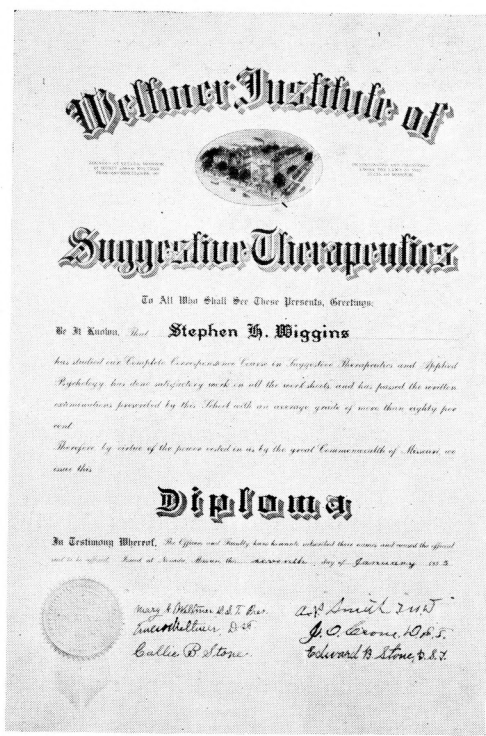 Weltmer Institute of
Suggestive Therapeutics
To All Who Shall See These Presents, Greetings:
Be It Known, That Stephen H. Wiggins
has studied our Complete Correspondence Course in Suggestive Therapeutics and Applied
Psychology has done satisfactory work in all the work sheets, and has passed the written
examinations prescribed by this School with an average grade of more than eighty per
cent
Therefore by virtue of the power vested in us by the great Commonwealth of Missouri, we
issue this
Diploma
In Testimony Whereof, The Officers and Faculty have hereunto subscribed their names and caused the official
seal to be affixed. Issued at Nevada, Missouri this seventh day of January
Mary A. Weltmer D.S.T. Pres.
Ernest Weltmer, D.S.T.
Callie B Stone
Smith
J. O. Crone, D.S.T.
Edward B Stone, D.S.T.